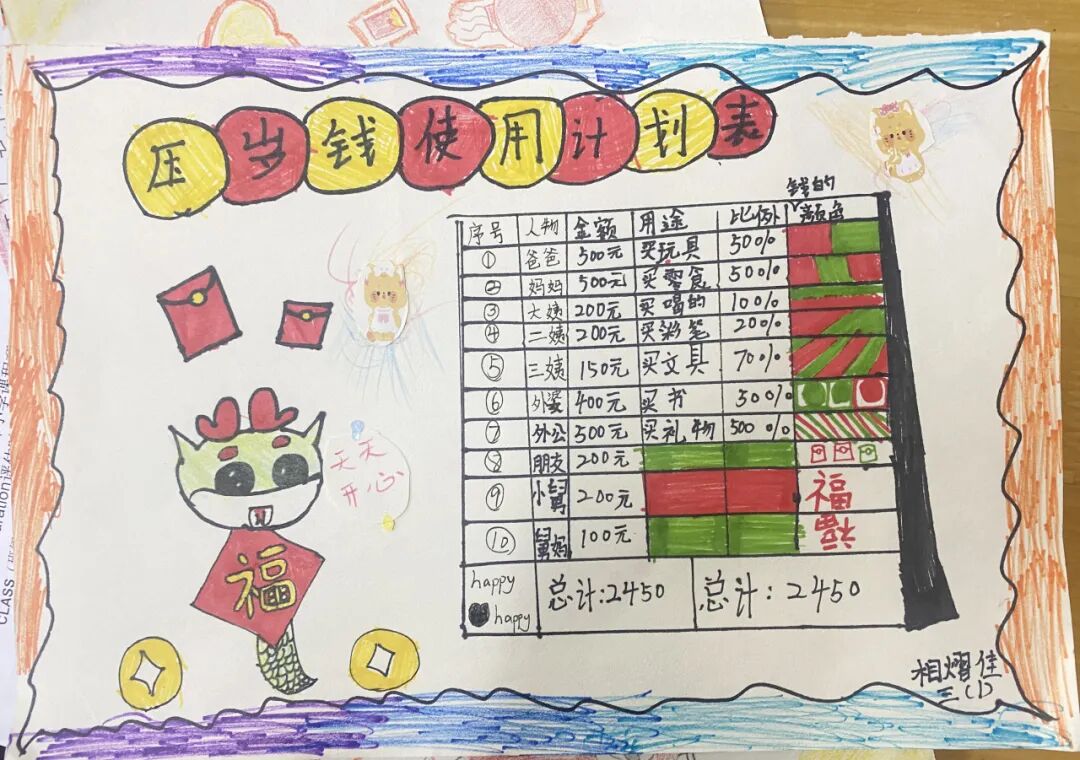 压岁钱使用计划表
钱的
序号 人物 金额 用途 比例 颜色
① 爸爸 500元 买玩具 50%
② 妈妈 500元 买零食 50%
③ 大姨 200元 买喝的 100%
④ 二姨 200元 买粥笔 20%
⑤ 三姨 150元 买文具 70%
⑥ 外婆 400元 买书 50%
⑦ 外公 500元 买礼物 500%
⑧ 朋友 200元
⑨ 小舅 200元 福
⑩ 舅妈 100元 福
happy
happy
总计:2450 总计:2450
天天
开心
福
三(1)